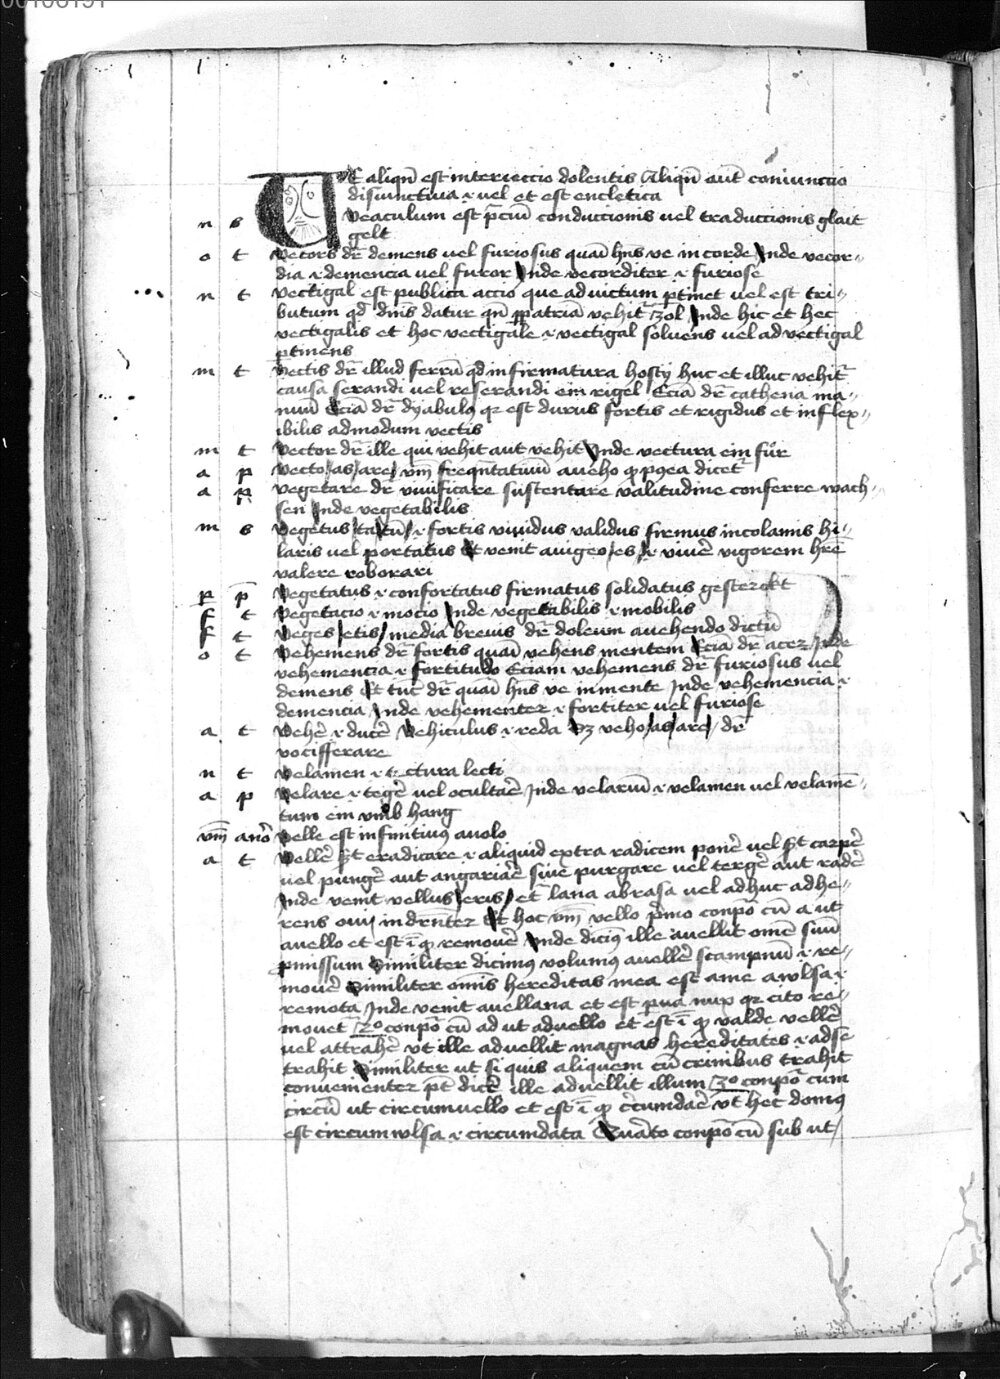 VE aliqn̄ est interieccio dolentis Aliqn̄ aut̄ coniunctio
disiunctiua ⁊ uel et est encletica
n s Veaculum est p̄ciū conductionis uel traductionis glait
gelt
o t Vecors dr̄ demens uel furiosus quasi hn̄s ve in corde Inde vecor
dia ⁊ demencia uel furor Inde vecorditer ⁊ furiose
n t Vectigal est publica accio que ad victum ptinet uel est tri
butum qd dn̄is datur qn̄ p patriā vehitr̄ zol Inde hic et hec
vectigalis et hoc vectigale ⁊ vectigal soluens uel ad vectigal
ptinens
m t Vectis dr̄ illud ferrū qd in firmatura hostij huc et illuc vehitr̄
causa serandi uel reserandi ein rigel Eciā dr̄ cathena ma
nuū Eciā dr̄ dyabulꝯ qr est durus fortis et rigidus et inflex
ibilis ad modum vectis
m t Vector dr̄ ille qui vehit aut vehit Inde vectura ein fůr
a p Vecto as are vm̄ freqn̄tatiuū a veho qd postea dicetr̄
a p Vegetare dr̄ viuificare sustentare valitudine conferre wach
sen Inde vegetabilis
m s Vegetus ta tū ⁊ fortis viuidus validus firmus incolamis hi
laris uel portatus Et venit a vigeo es ⁊ viuē vigorem hr̄e
valere roborari
p p̄ Vegetatus ⁊ confortatus firmatus solidatus gesterckt
f t Vegetacio ⁊ mocio Inde vegetabilis ⁊ mobilis
f t Veges etis media breuis dr̄ doleum a vehendo dictū
o t Vehemens dr̄ fortis quasi vehens mentem Eciā dr̄ acer Inde
vehemencia ⁊ fortitudo Eciam vehemens dr̄ furiosus uel
demens Et tūc dr̄ quasi hn̄s ve in mente Inde vehemencia ⁊
demencia Inde vehementer ⁊ fortiter uel furiose
a t Vehē ⁊ ducē Vehiculus ⁊ reda Sz veho as are dr̄
vocifferare
n t Velamen ⁊ tectura lecti
a p Velare ⁊ tegē uel ocultāe Inde velariū ⁊ velamen uel velamē
tum ein vmb hang
vm̄ ano Velle est infinitiuꝯ a volo
a t Vellē est eradicare ⁊ aliquid extra radicem ponē uel est carpē
uel pungē aut angariāe siue purgare uel tergē aut radē
Inde venit vellus eris et lana abrasa uel adhuc adhe
rens oui indrn̄ter Et hoc vm̄ vello p̄mo conpo cū a ut
auello et est i qd remouē Inde dicimꝯ ille auellit om̄e suū
pmissum Similiter dicimꝯ volumus auellē scampnū ⁊ re
mouē Similiter om̄is hereditas mea est a me awlsa ⁊
remota Inde venit auellana et est pua nux qr cito re
mouet 2o conpo cū ad ut aduello et est i qd valde vellē
uel attrahē ut ille aduellit magnas hereditates ⁊ ad se
trahit Similiter ut si quis aliquem cū crinibus trahit
conuenienter pt dicē ille aduellit illum 3o conpo cum
circū ut circumuello et est i qd circumdāe ut hec domꝯ
est circumwlsa ⁊ circumdata Quarto conpo cū sub ut